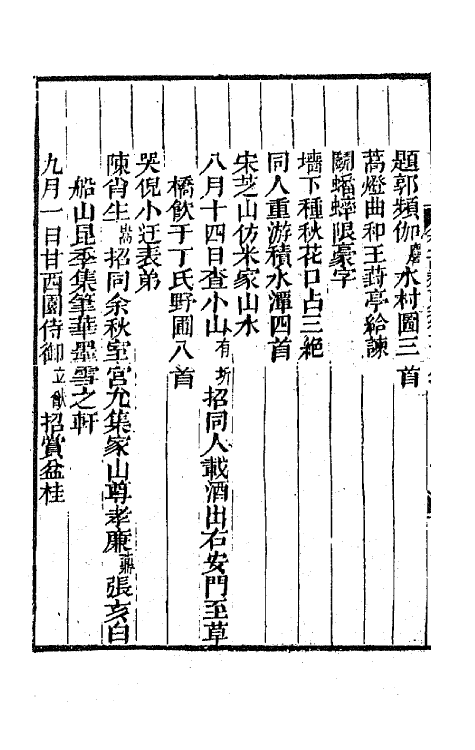 題郭頻伽麐水村圖三首
蒿燈曲和王葑亭給諫
鬭蟋蟀限豪字
墻下種秋花口占三絶
同人重游積水潭四首
宋芝山仿米家山水
八月十四日查小山有圻招同人載酒出右安門至草
橋飲于丁氏野圃八首
哭倪小迂表弟
陳肖生嵩招同余秋室宮允集家山尊孝廉鼒張亥白
船山昆季集筆華墨雪之軒
九月一日甘西園侍御立猷招賞盆桂